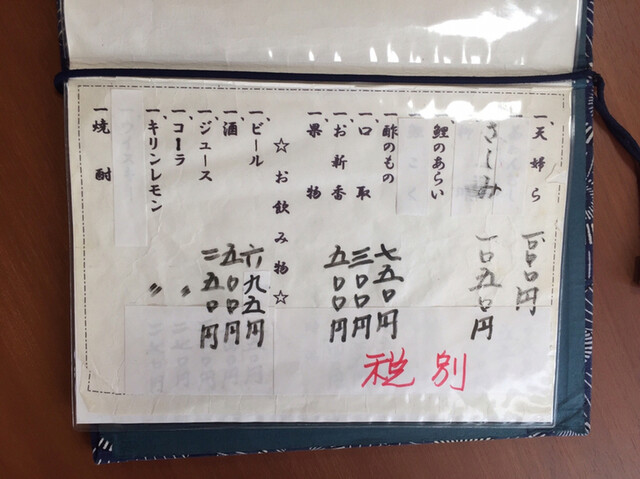 一、天婦ら 一〇〇〇円
さしみ 一〇五〇円
一、鯉のあらい
一、酢のもの 七五〇円
一、口取 三〇〇円
一、お新香 五〇〇円
一、果物
☆お飲み物☆
一、ビール 六九五円
一、酒 五〇〇円
一、ジュース 二五〇円
一、コーラ 〃
一、キリンレモン 〃
一、焼酎
税別